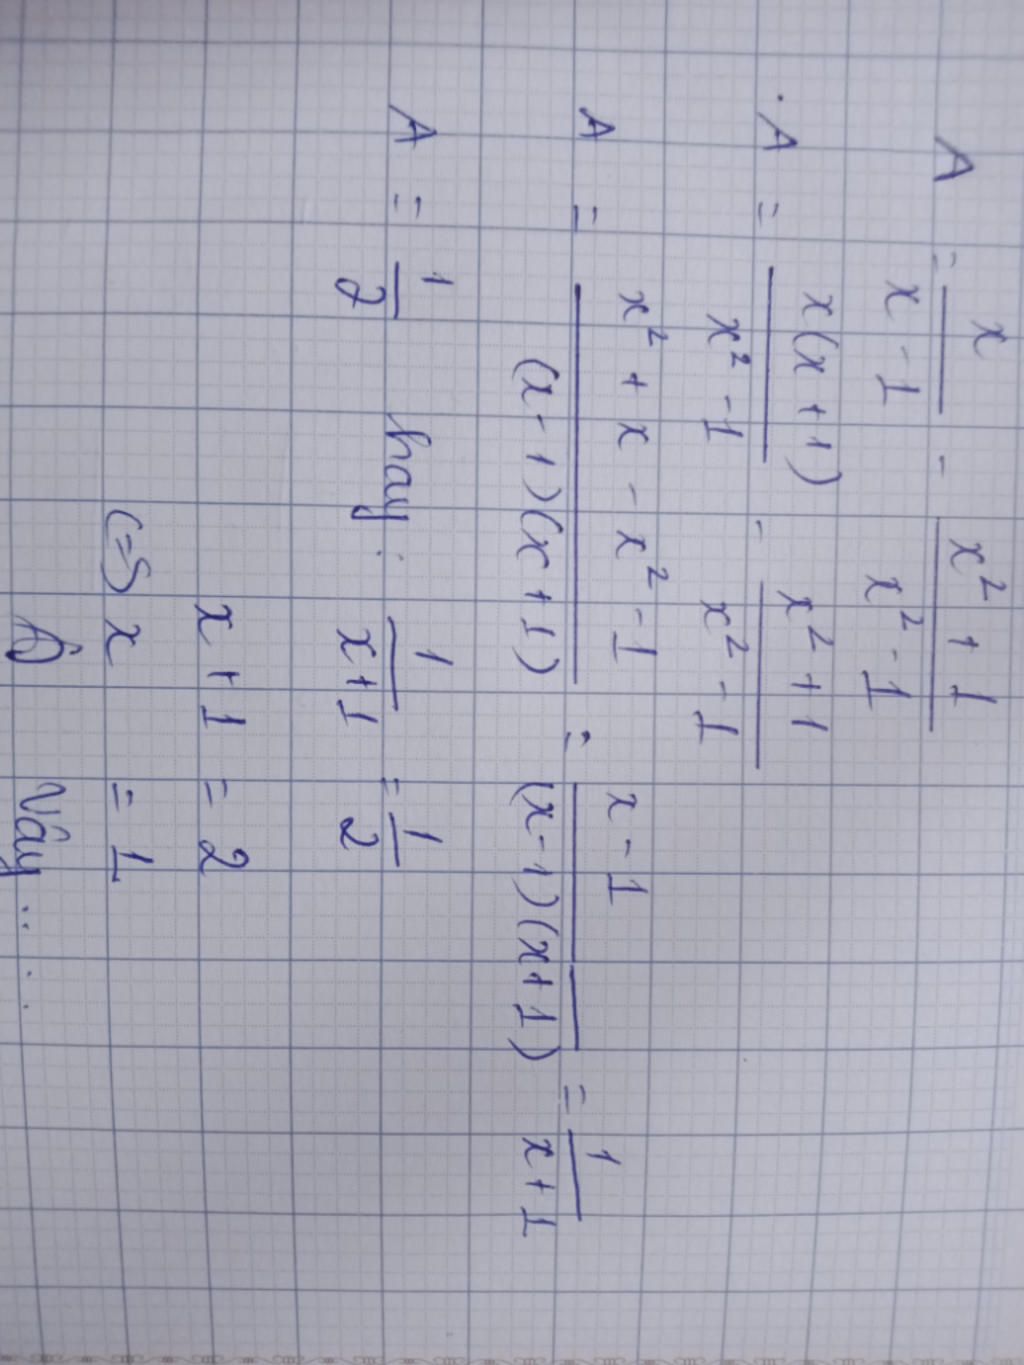 A = x / (x - 1) - (x² + 1) / (x² - 1)
A = x(x + 1) / (x² - 1) - (x² + 1) / (x² - 1)
A = (x² + x - x² - 1) / ((x - 1)(x + 1)) = (x - 1) / ((x - 1)(x + 1)) = 1 / (x + 1)
A = 1 / 2 hay: 1 / (x + 1) = 1 / 2
x + 1 = 2
<=> x = 1
Vậy ....